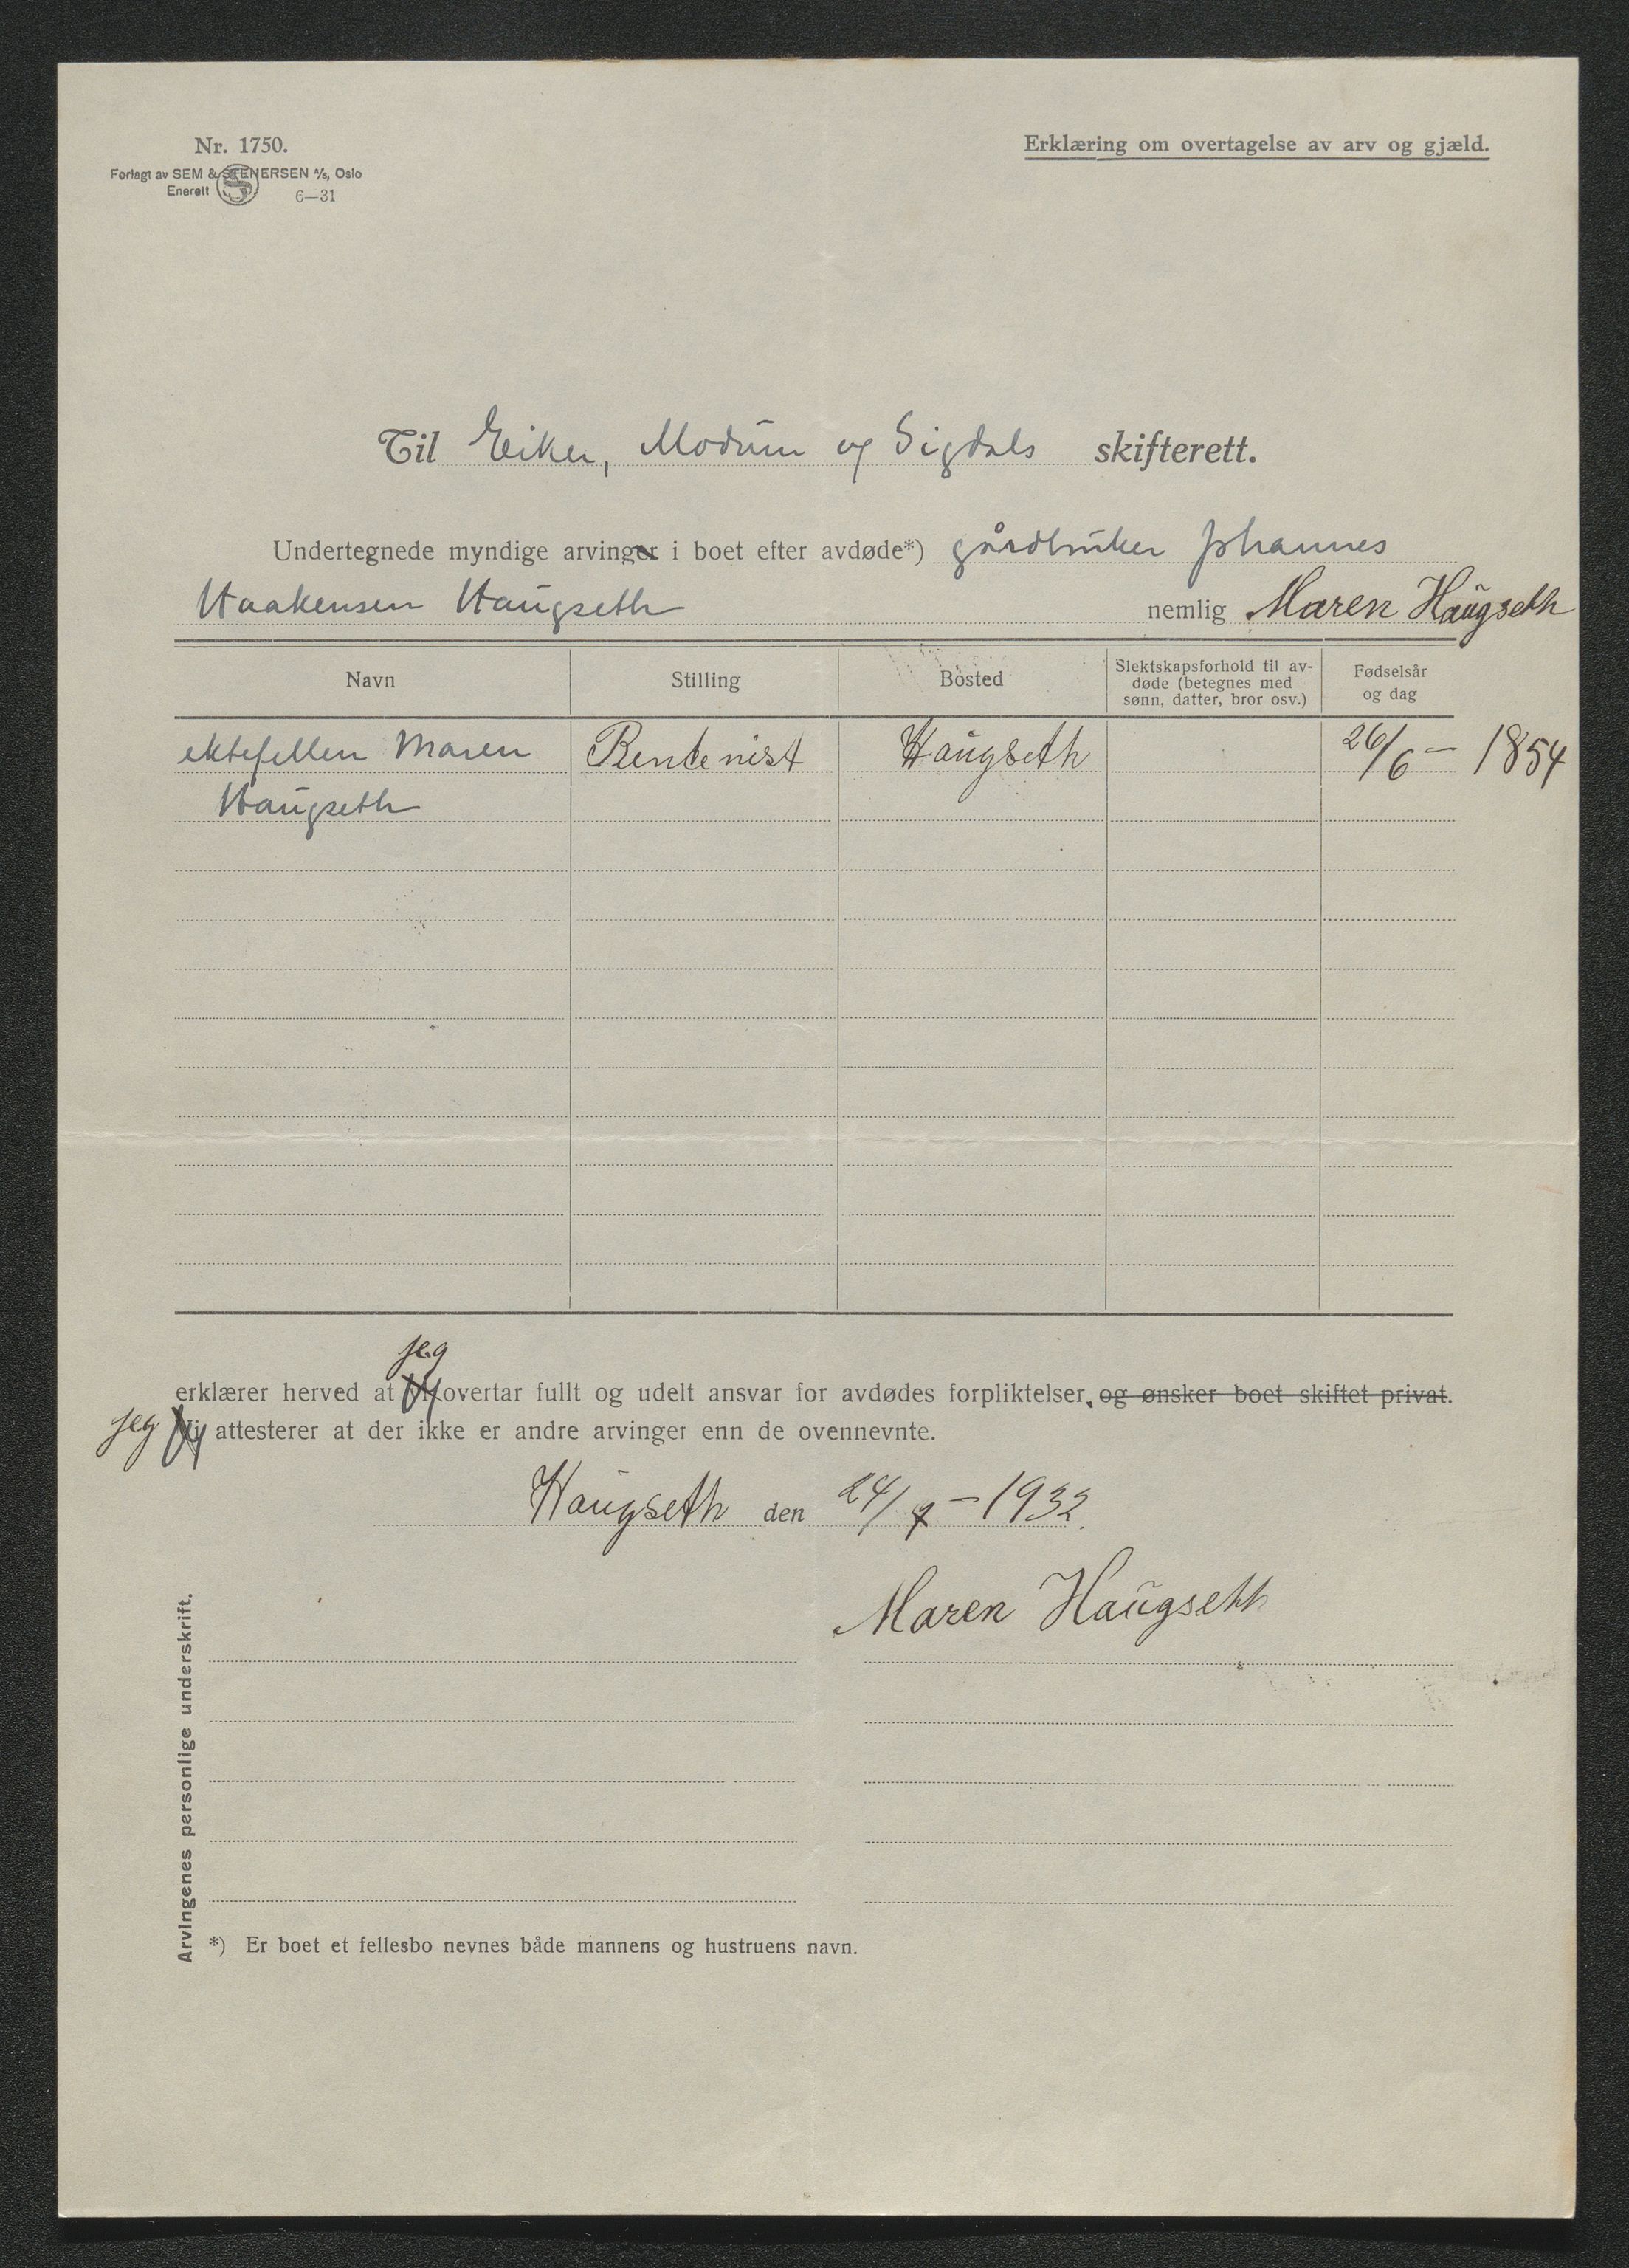 Nr. 1750.
Forlagt av SEM & STENERSEN A/s, Oslo
Enerett
6—31
Erklæring om overtagelse av arv og gjæld.
Til Eiker, Modum og Sigdals skifterett.
Undertegnede myndige arvinger i boet efter avdøde*) gårdbruker Johannes
Haakensen Haugseth nemlig Maren Haugseth
Navn Stilling Bosted Slektskapsforhold til av-
døde (betegnes med
sønn, datter, bror osv.) Fødselsår
og dag
ektefellen Maren Rentenist Haugseth 26/6 – 1854
Haugseth
jeg
erklærer herved at vi overtar fullt og udelt ansvar for avdødes forpliktelser. og ønsker boet skiftet privat.
jeg Vi attesterer at der ikke er andre arvinger enn de ovennevnte.
Haugseth den 24/7 – 1932.
Maren Haugseth
Arvingenes personlige underskrift.
*) Er boet et fellesbo nevnes både mannens og hustruens navn.